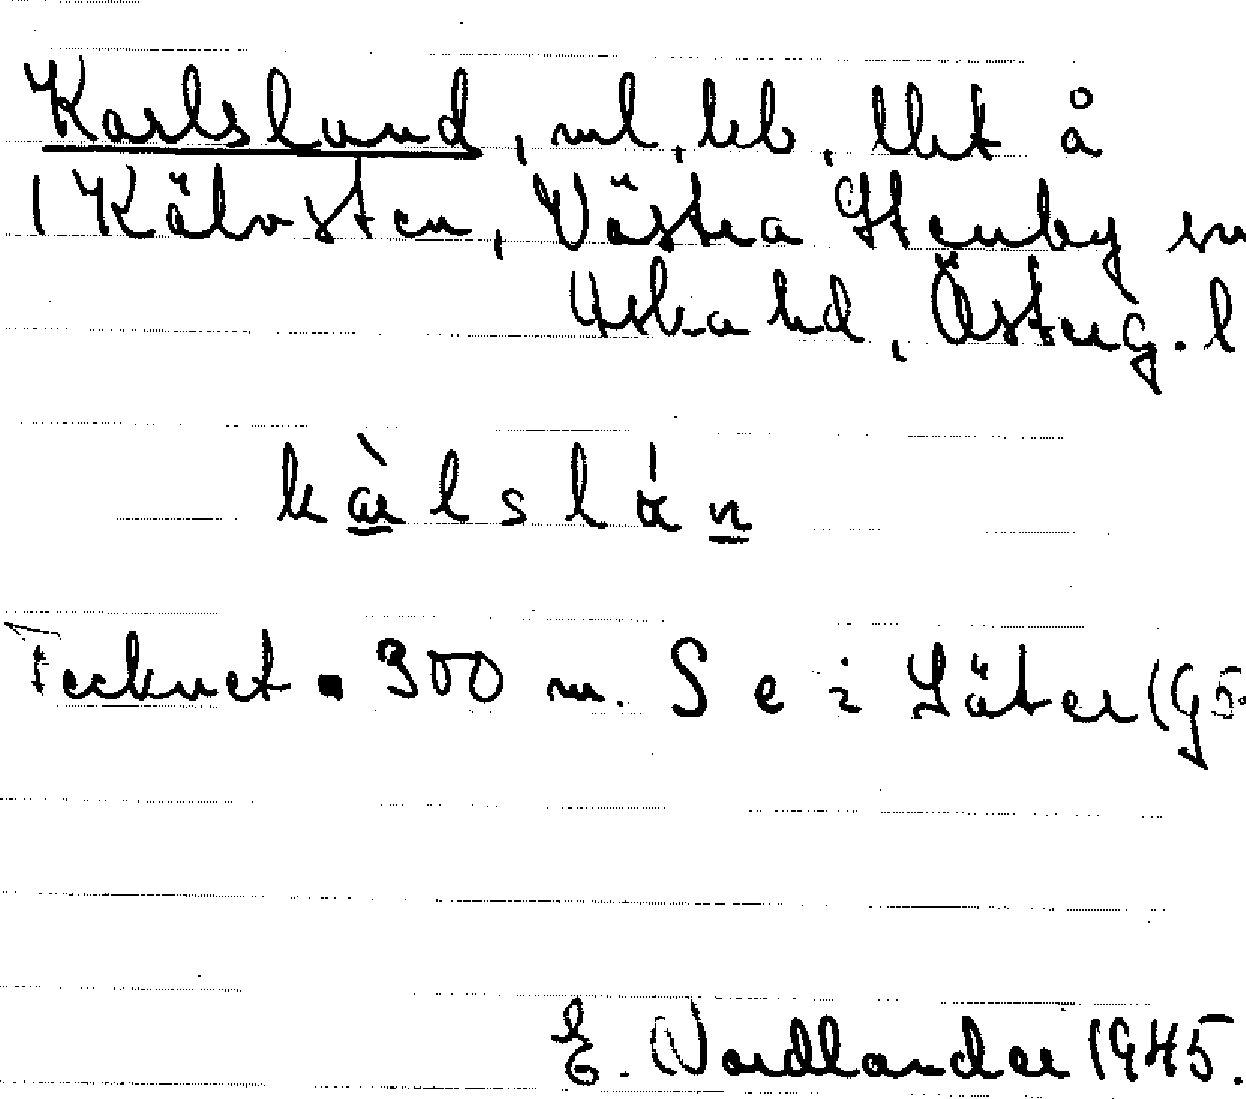 Karlslund, nl, bb, tlht å
1 Kälvsten, Västra Stenby sn
Aska hd, Österg. l
Tecknet 300 m. S e i Säter (Gö
E. Nordlander 1945.